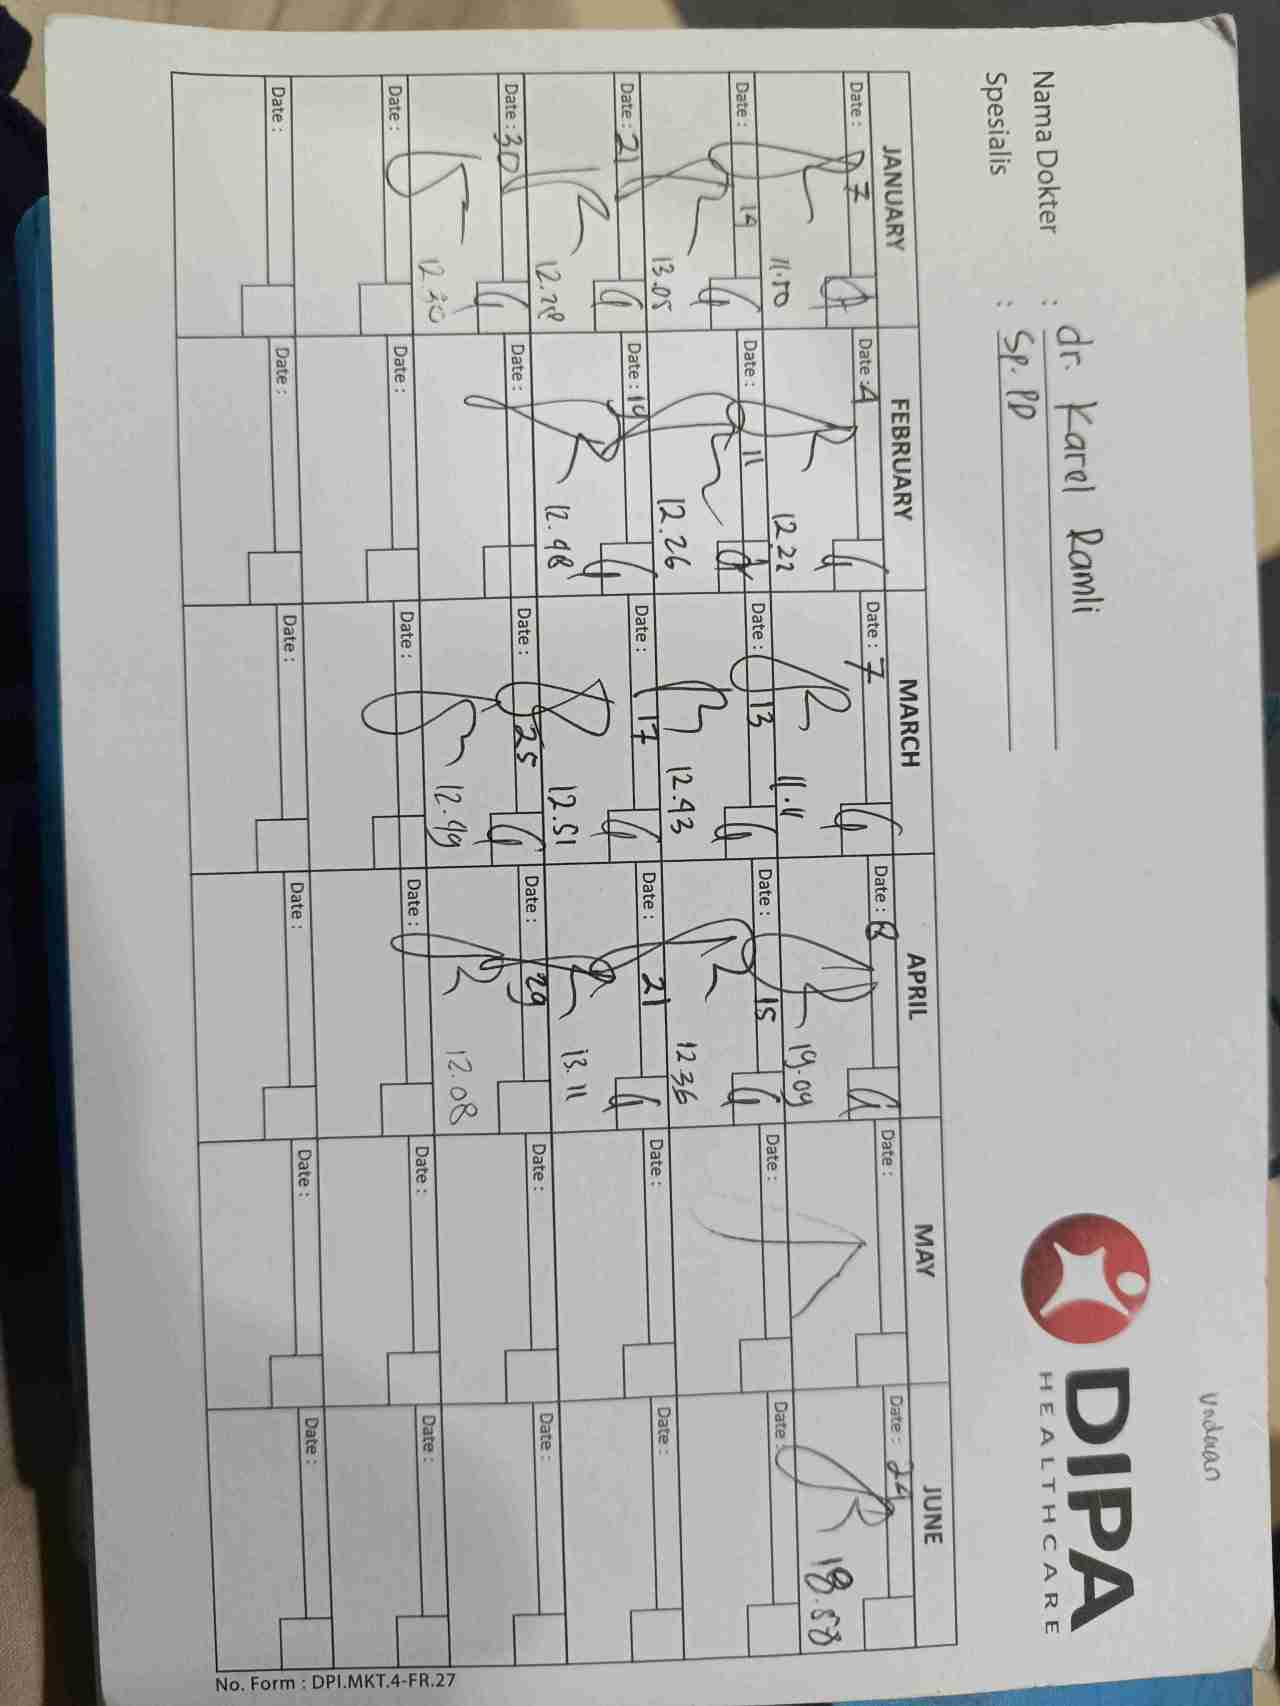 Undaan
DIPA
HEALTHCARE
Nama Dokter : dr. Karel Ramli
Spesialis : Sp. PD
JANUARY FEBRUARY MARCH APRIL MAY JUNE
Date : 7 Date : 4 Date : 7 Date : 8 Date : Date : 24
12.22 11.11 19.09 18.58
Date : 14 Date : 11 Date : 13 Date : 15 Date : Date :
13.05 12.26 12.43 12.36
Date : 21 Date : 19 Date : 17 Date : 21 Date : Date :
12.48 12.51 13.11
Date : 30 Date : Date : 25 Date : 29 Date : Date :
12.30 12.49 12.08
Date : Date : Date : Date : Date : Date :
Date : Date : Date : Date : Date : Date :
No. Form : DPI.MKT.4-FR.27